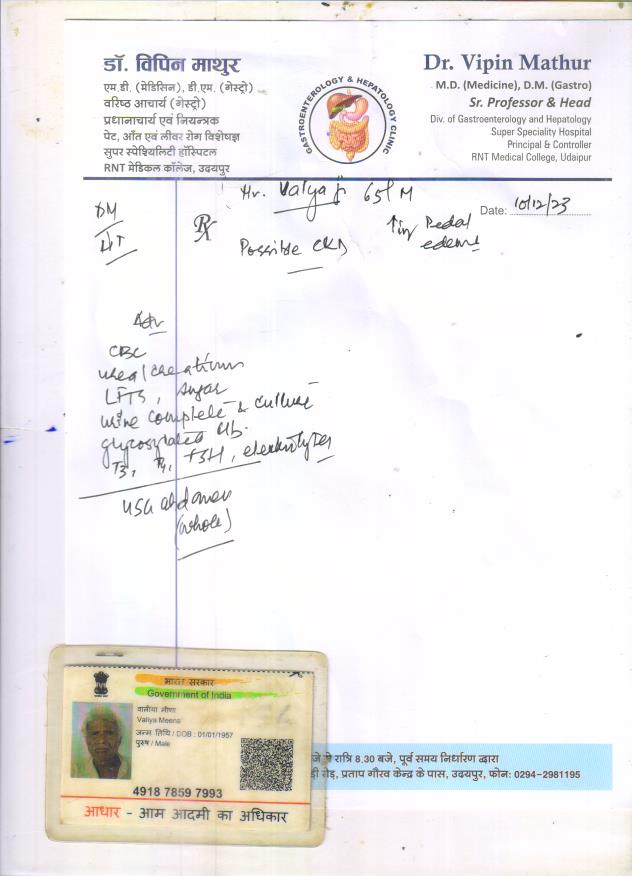 डॉ. विपिन माथुर
एम.डी. (मेडिसिन), डी.एम. (गेस्ट्रो)
वरिष्ठ आचार्य (गेस्ट्रो)
प्रधानाचार्य एवं नियन्त्रक
पेट, आँत एवं लीवर रोग विशेषज्ञ
सुपर स्पेश्यिलिटी हॉस्पिटल
RNT मेडिकल कॉलेज, उदयपुर
GASTROENTEROLOGY & HEPATOLOGY CLINIC
Dr. Vipin Mathur
M.D. (Medicine), D.M. (Gastro)
Sr. Professor & Head
Div. of Gastroenterology and Hepatology
Super Speciality Hospital
Principal & Controller
RNT Medical College, Udaipur
Mr. Valya ji 65/M
Date: 10/12/23
DM
Rx
Possible CKD
Pedal
edema
Adv
CBC
urea/creatinine
LFTs, sugar
urine complete & culture
glycosylated Hb.
T3, T4, TSH, electrolytes
USG abdomen
(whole)
भारत सरकार
Government of India
वालीया मीणा
Valiya Meena
जन्म तिथि / DOB : 01/01/1957
पुरुष / Male
4918 7859 7993
आधार - आम आदमी का अधिकार
जे से रात्रि 8.30 बजे, पूर्व समय निर्धारण द्वारा
ड़ी रोड़, प्रताप गौरव केन्द्र के पास, उदयपुर, फोन: 0294-2981195